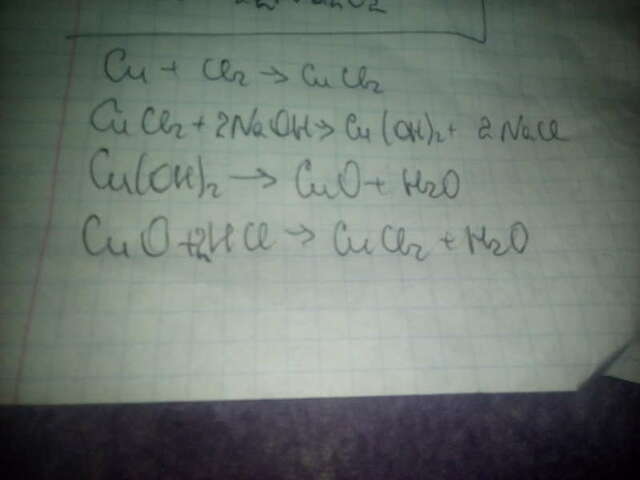 Cu + Cl₂ → CuCl₂
CuCl₂ + 2NaOH → Cu(OH)₂ + 2NaCl
Cu(OH)₂ → CuO + H₂O
CuO + 2HCl → CuCl₂ + H₂O